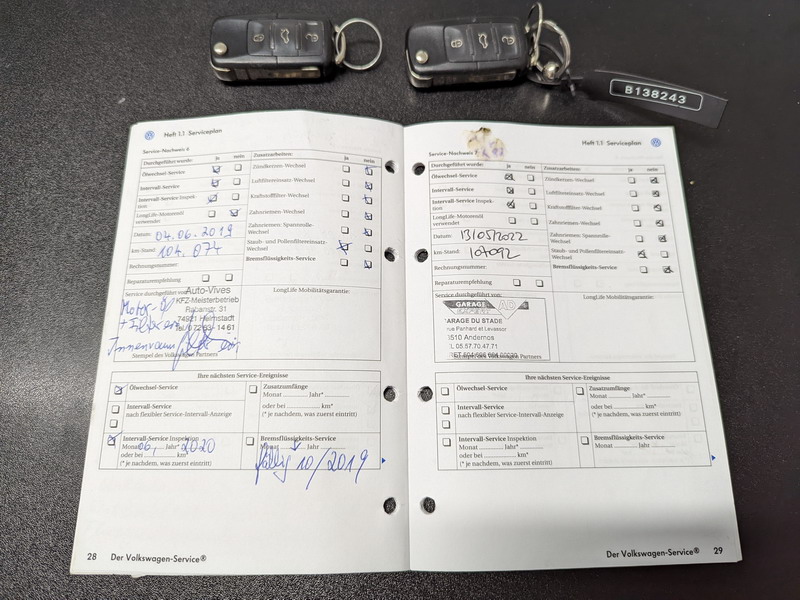 B138243
Heft 1.1 Serviceplan
Service-Nachweis 6
Durchgeführt wurde: ja nein Zusatzarbeiten: ja nein
Ölwechsel-Service
Intervall-Service
Intervall-Service Inspek-
tion
LongLife-Motorenöl
verwendet
Datum: 04.06.2019
km-Stand: 104.074
Rechnungsnummer:
Reparaturempfehlung
Zündkerzen-Wechsel
Luftfiltereinsatz-Wechsel
Kraftstofffilter-Wechsel
Zahnriemen-Wechsel
Zahnriemen: Spannrolle-
Wechsel
Staub- und Pollenfiltereinsatz-
Wechsel
Bremsflüssigkeits-Service
Service durchgeführt von:
Auto-Vives
KFZ-Meisterbetrieb
74921 Helmstadt
Motor-Öl
Innenraum
Stempel des Volkswagen Partners
LongLife Mobilitätsgarantie:
Ihre nächsten Service-Ereignisse
Ölwechsel-Service
Intervall-Service
nach flexibler Service-Intervall-Anzeige
Intervall-Service Inspektion
Monat 06, Jahr 2020
oder bei km*
(* je nachdem, was zuerst eintritt)
Zusatzumfänge
Monat Jahr*
oder bei km*
(* je nachdem, was zuerst eintritt)
Bremsflüssigkeits-Service
Monat Jahr
fällig 10/2019
28 Der Volkswagen-Service®
Heft 1.1 Serviceplan
Service-Nachweis
Durchgeführt wurde: ja nein Zusatzarbeiten: ja nein
Ölwechsel-Service
Intervall-Service
Intervall-Service Inspek-
tion
LongLife-Motorenöl
verwendet
Datum: 13/05/2022
km-Stand: 107092
Rechnungsnummer:
Reparaturempfehlung
Zündkerzen-Wechsel
Luftfiltereinsatz-Wechsel
Kraftstofffilter-Wechsel
Zahnriemen-Wechsel
Zahnriemen: Spannrolle-
Wechsel
Staub- und Pollenfiltereinsatz-
Wechsel
Bremsflüssigkeits-Service
Service durchgeführt von:
GARAGE
EXPERT AD
ARAGE DU STADE
rue Panhard et Levassor
3510 Andernos
L 05.57.70.47.71
Stempel des Volkswagen Partners
LongLife Mobilitätsgarantie:
Ihre nächsten Service-Ereignisse
Ölwechsel-Service
Intervall-Service
nach flexibler Service-Intervall-Anzeige
Intervall-Service Inspektion
Monat Jahr
oder bei km*
(* je nachdem, was zuerst eintritt)
Zusatzumfänge
Monat Jahr*
oder bei km*
(* je nachdem, was zuerst eintritt)
Bremsflüssigkeits-Service
Monat Jahr
Der Volkswagen-Service® 29